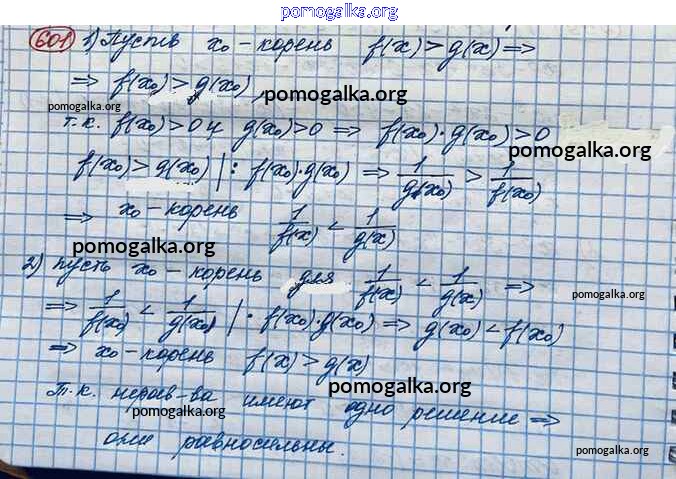 pomogalka.org
601 1) Пусть x₀ - корень f(x) > g(x) ⇒
⇒ f(x₀) > g(x₀),
pomogalka.org
pomogalka.org
т.к. f(x₀) > 0 и g(x₀) > 0 ⇒ f(x₀)·g(x₀) > 0
pomogalka.org
f(x₀) > g(x₀) | : f(x₀)·g(x₀) ⇒ 1/g(x₀) > 1/f(x₀)
⇒ x₀ - корень 1/f(x) < 1/g(x)
pomogalka.org
2) пусть x₀ - корень для 1/f(x) < 1/g(x) ⇒
pomogalka.org
⇒ 1/f(x₀) < 1/g(x₀) | · f(x₀)·g(x₀) ⇒ g(x₀) < f(x₀)
⇒ x₀ - корень f(x) > g(x)
pomogalka.org
Т.к. нерав-ва имеют одно решение ⇒
pomogalka.org
они равносильны.
pomogalka.org